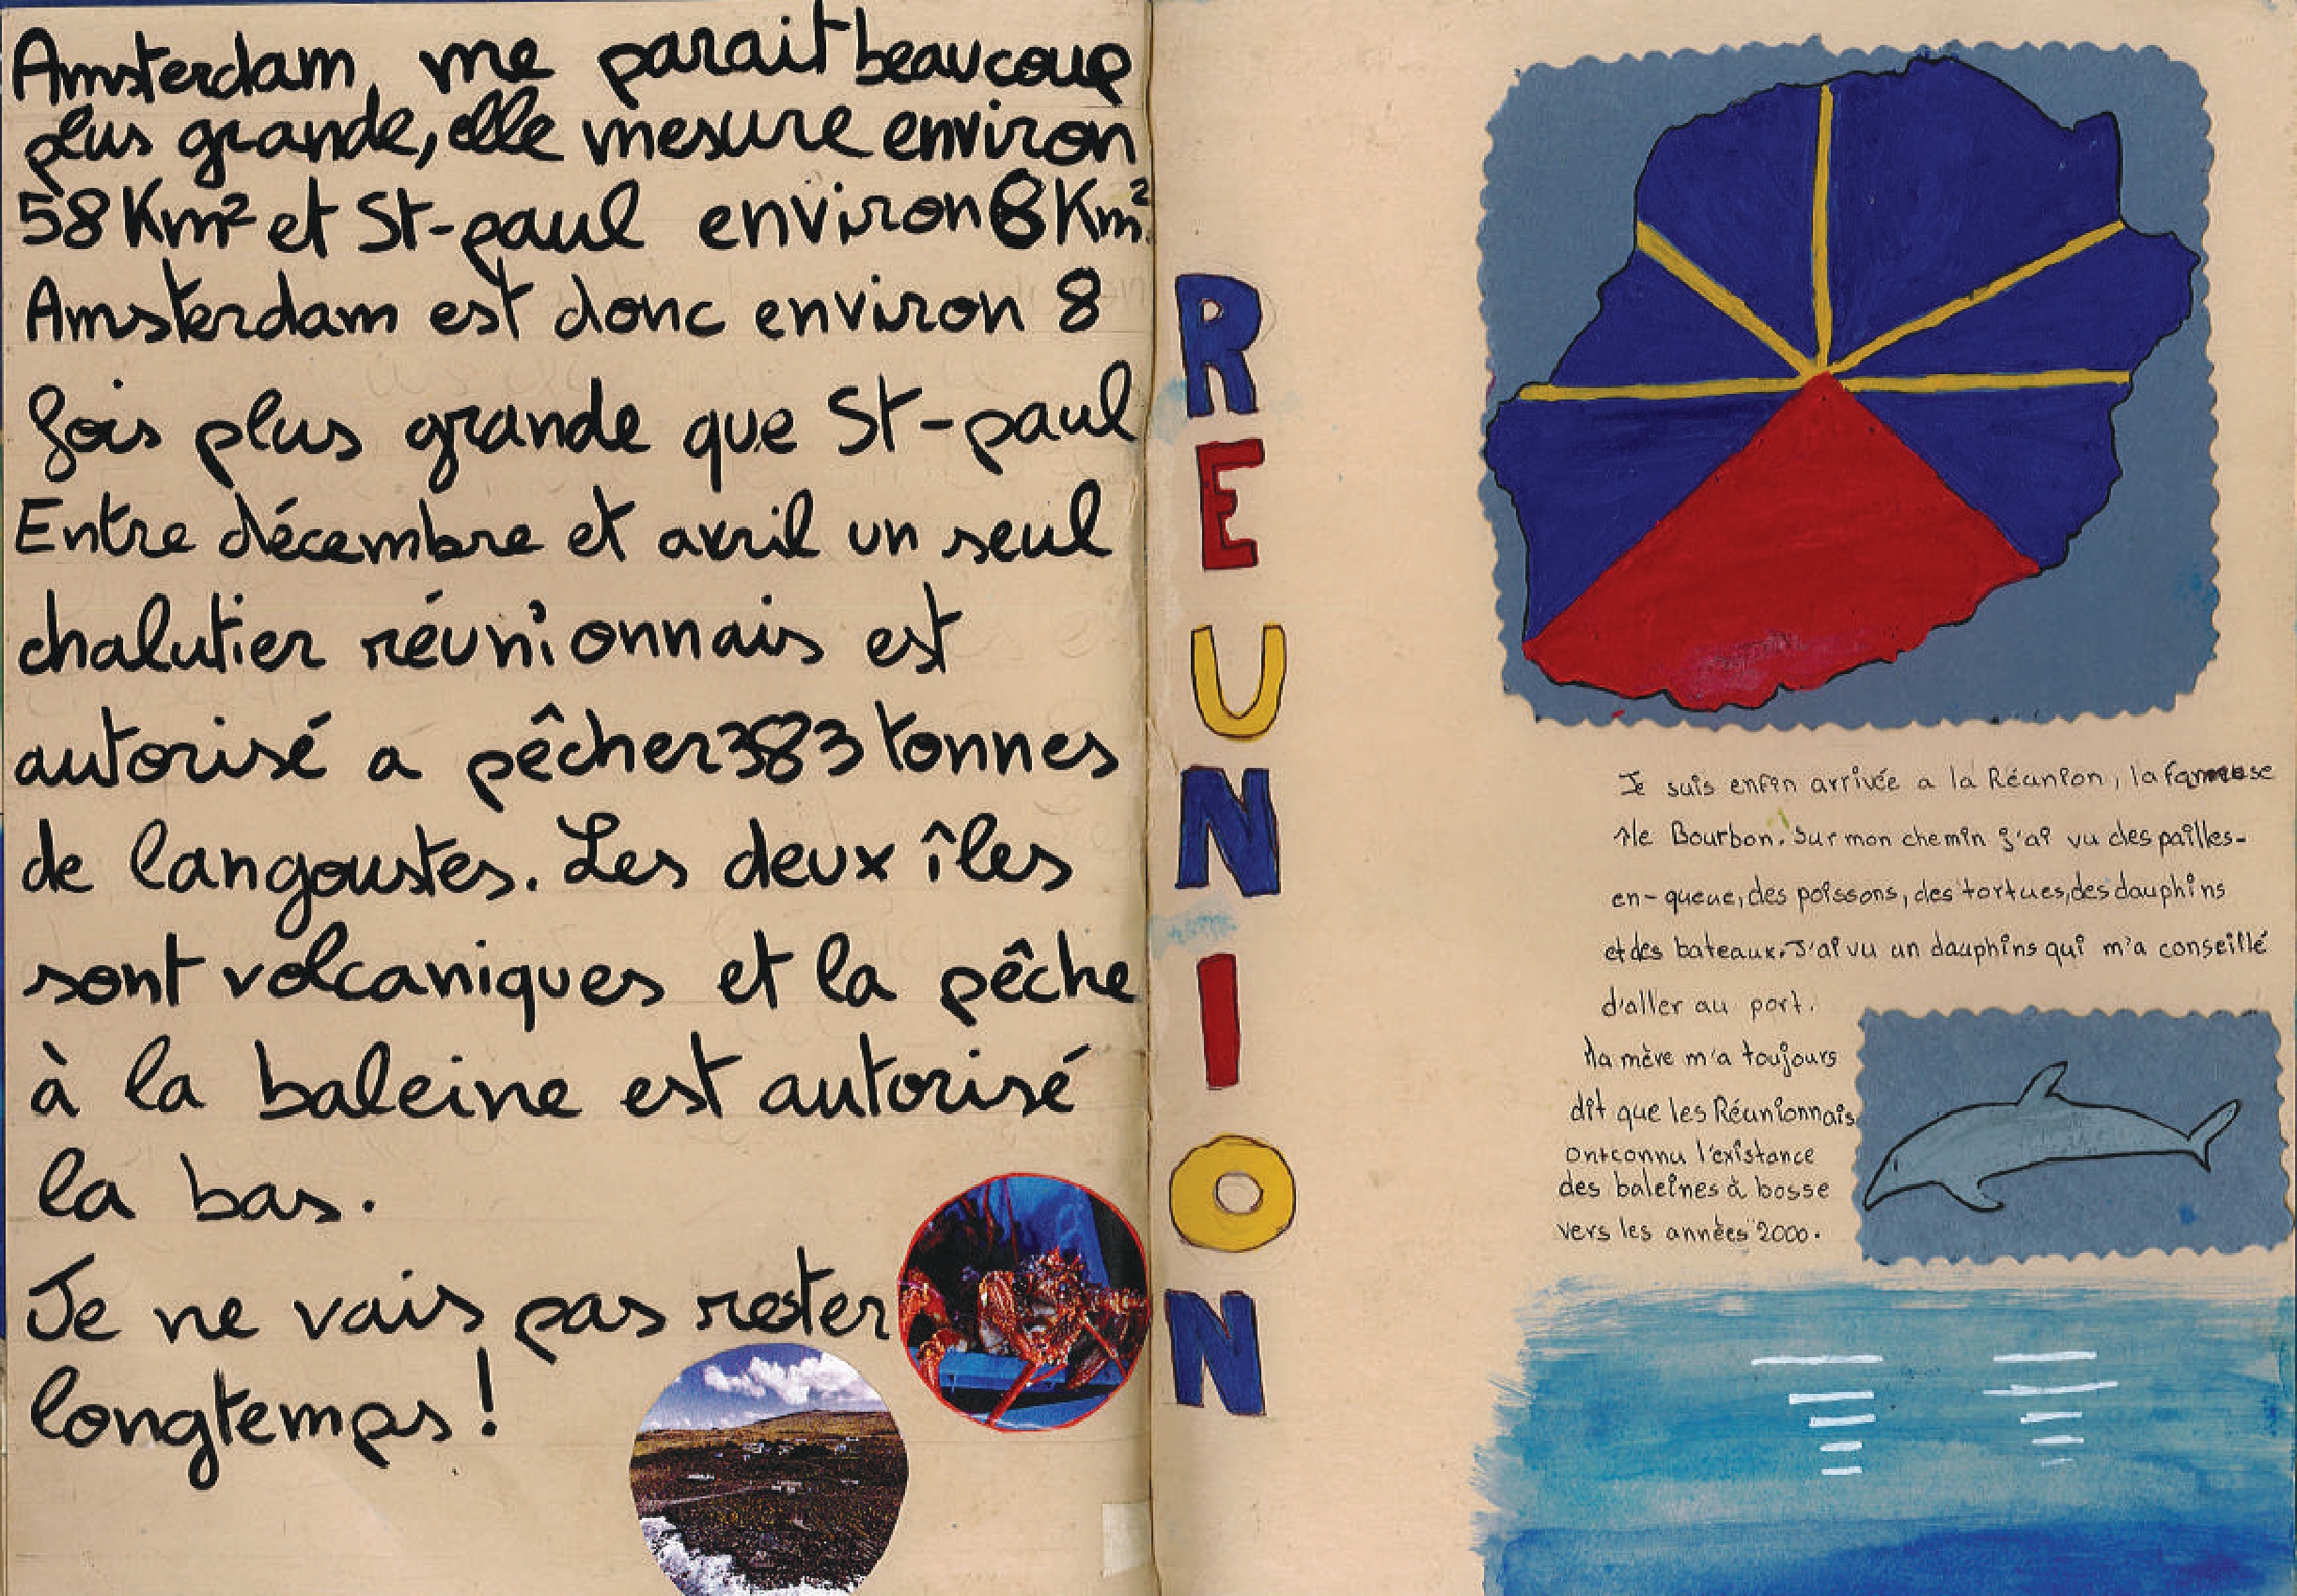 Amsterdam, me parait beaucoup
plus grande, elle mesure environ
58 Km² et St-paul environ 8 Km².
Amsterdam est donc environ 8
fois plus grande que St-paul
Entre décembre et avril un seul
chalutier réunionnais est
autorisé a pêcher 383 tonnes
de langoustes. Les deux îles
sont volcaniques et la pêche
à la baleine est autorisé
la bas.
Je ne vais pas rester
longtemps !
REUNION
Je suis enfin arrivée a la Réunion, la fameuse
île Bourbon. Sur mon chemin j'ai vu des pailles-
en-queue, des poissons, des tortues, des dauphins
et des bateaux. J'ai vu un dauphins qui m'a conseillé
d'aller au port.
Ma mère m'a toujours
dit que les Réunionnais
ont connu l'existance
des baleines à bosse
vers les années 2000.